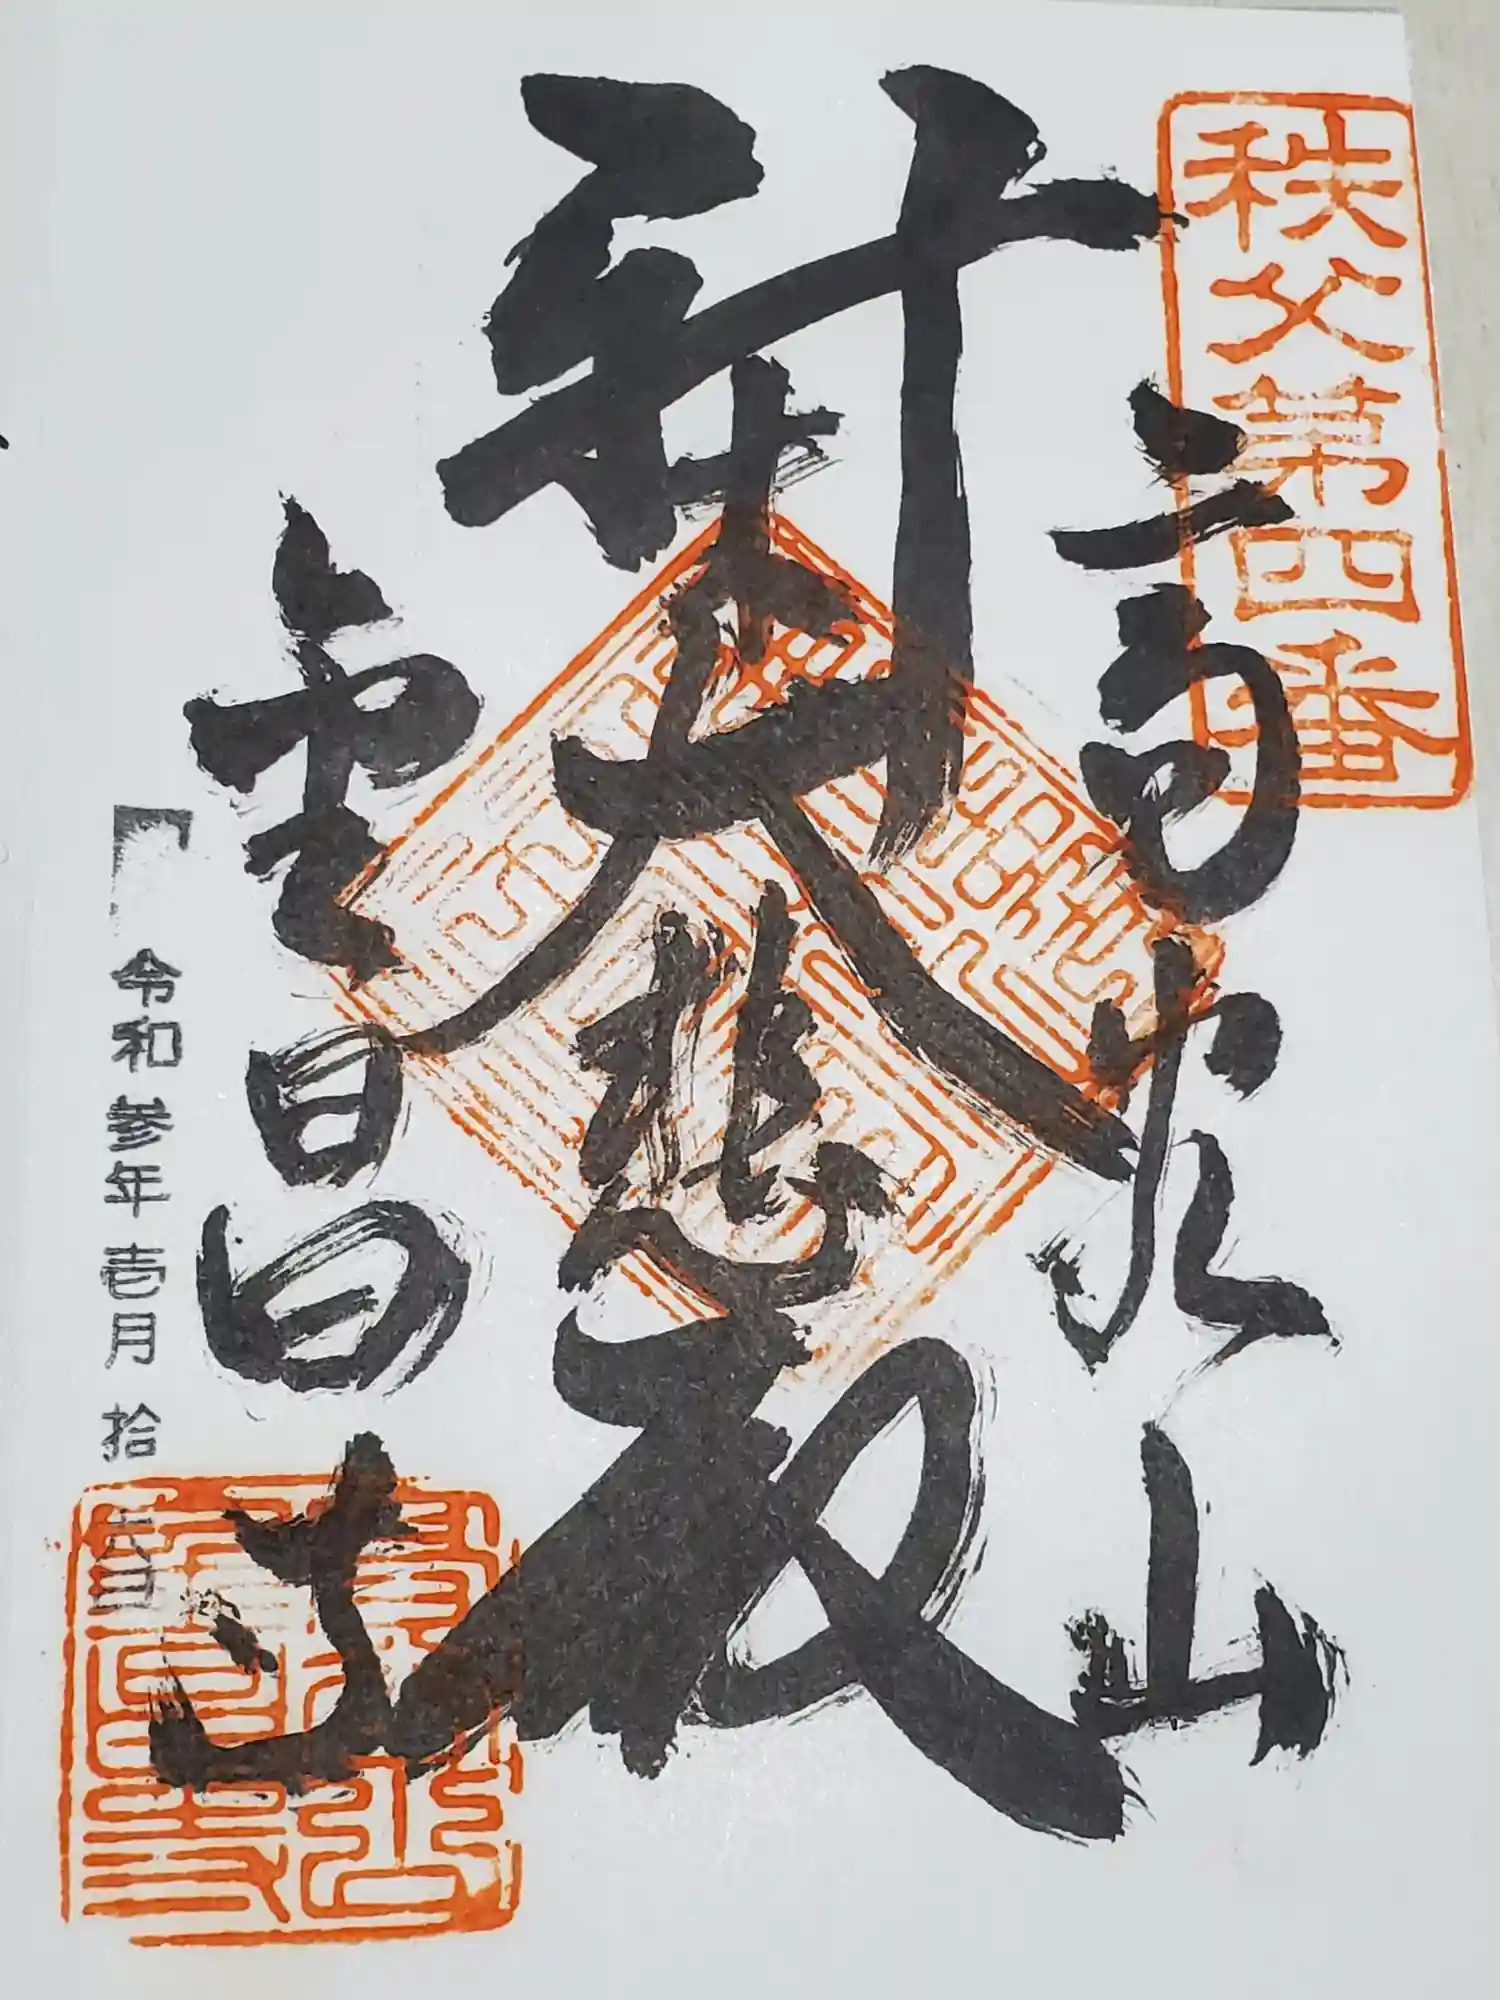 秩父第四番
高谷山
新木大悲殿
金昌寺
令和参年壱月拾六日